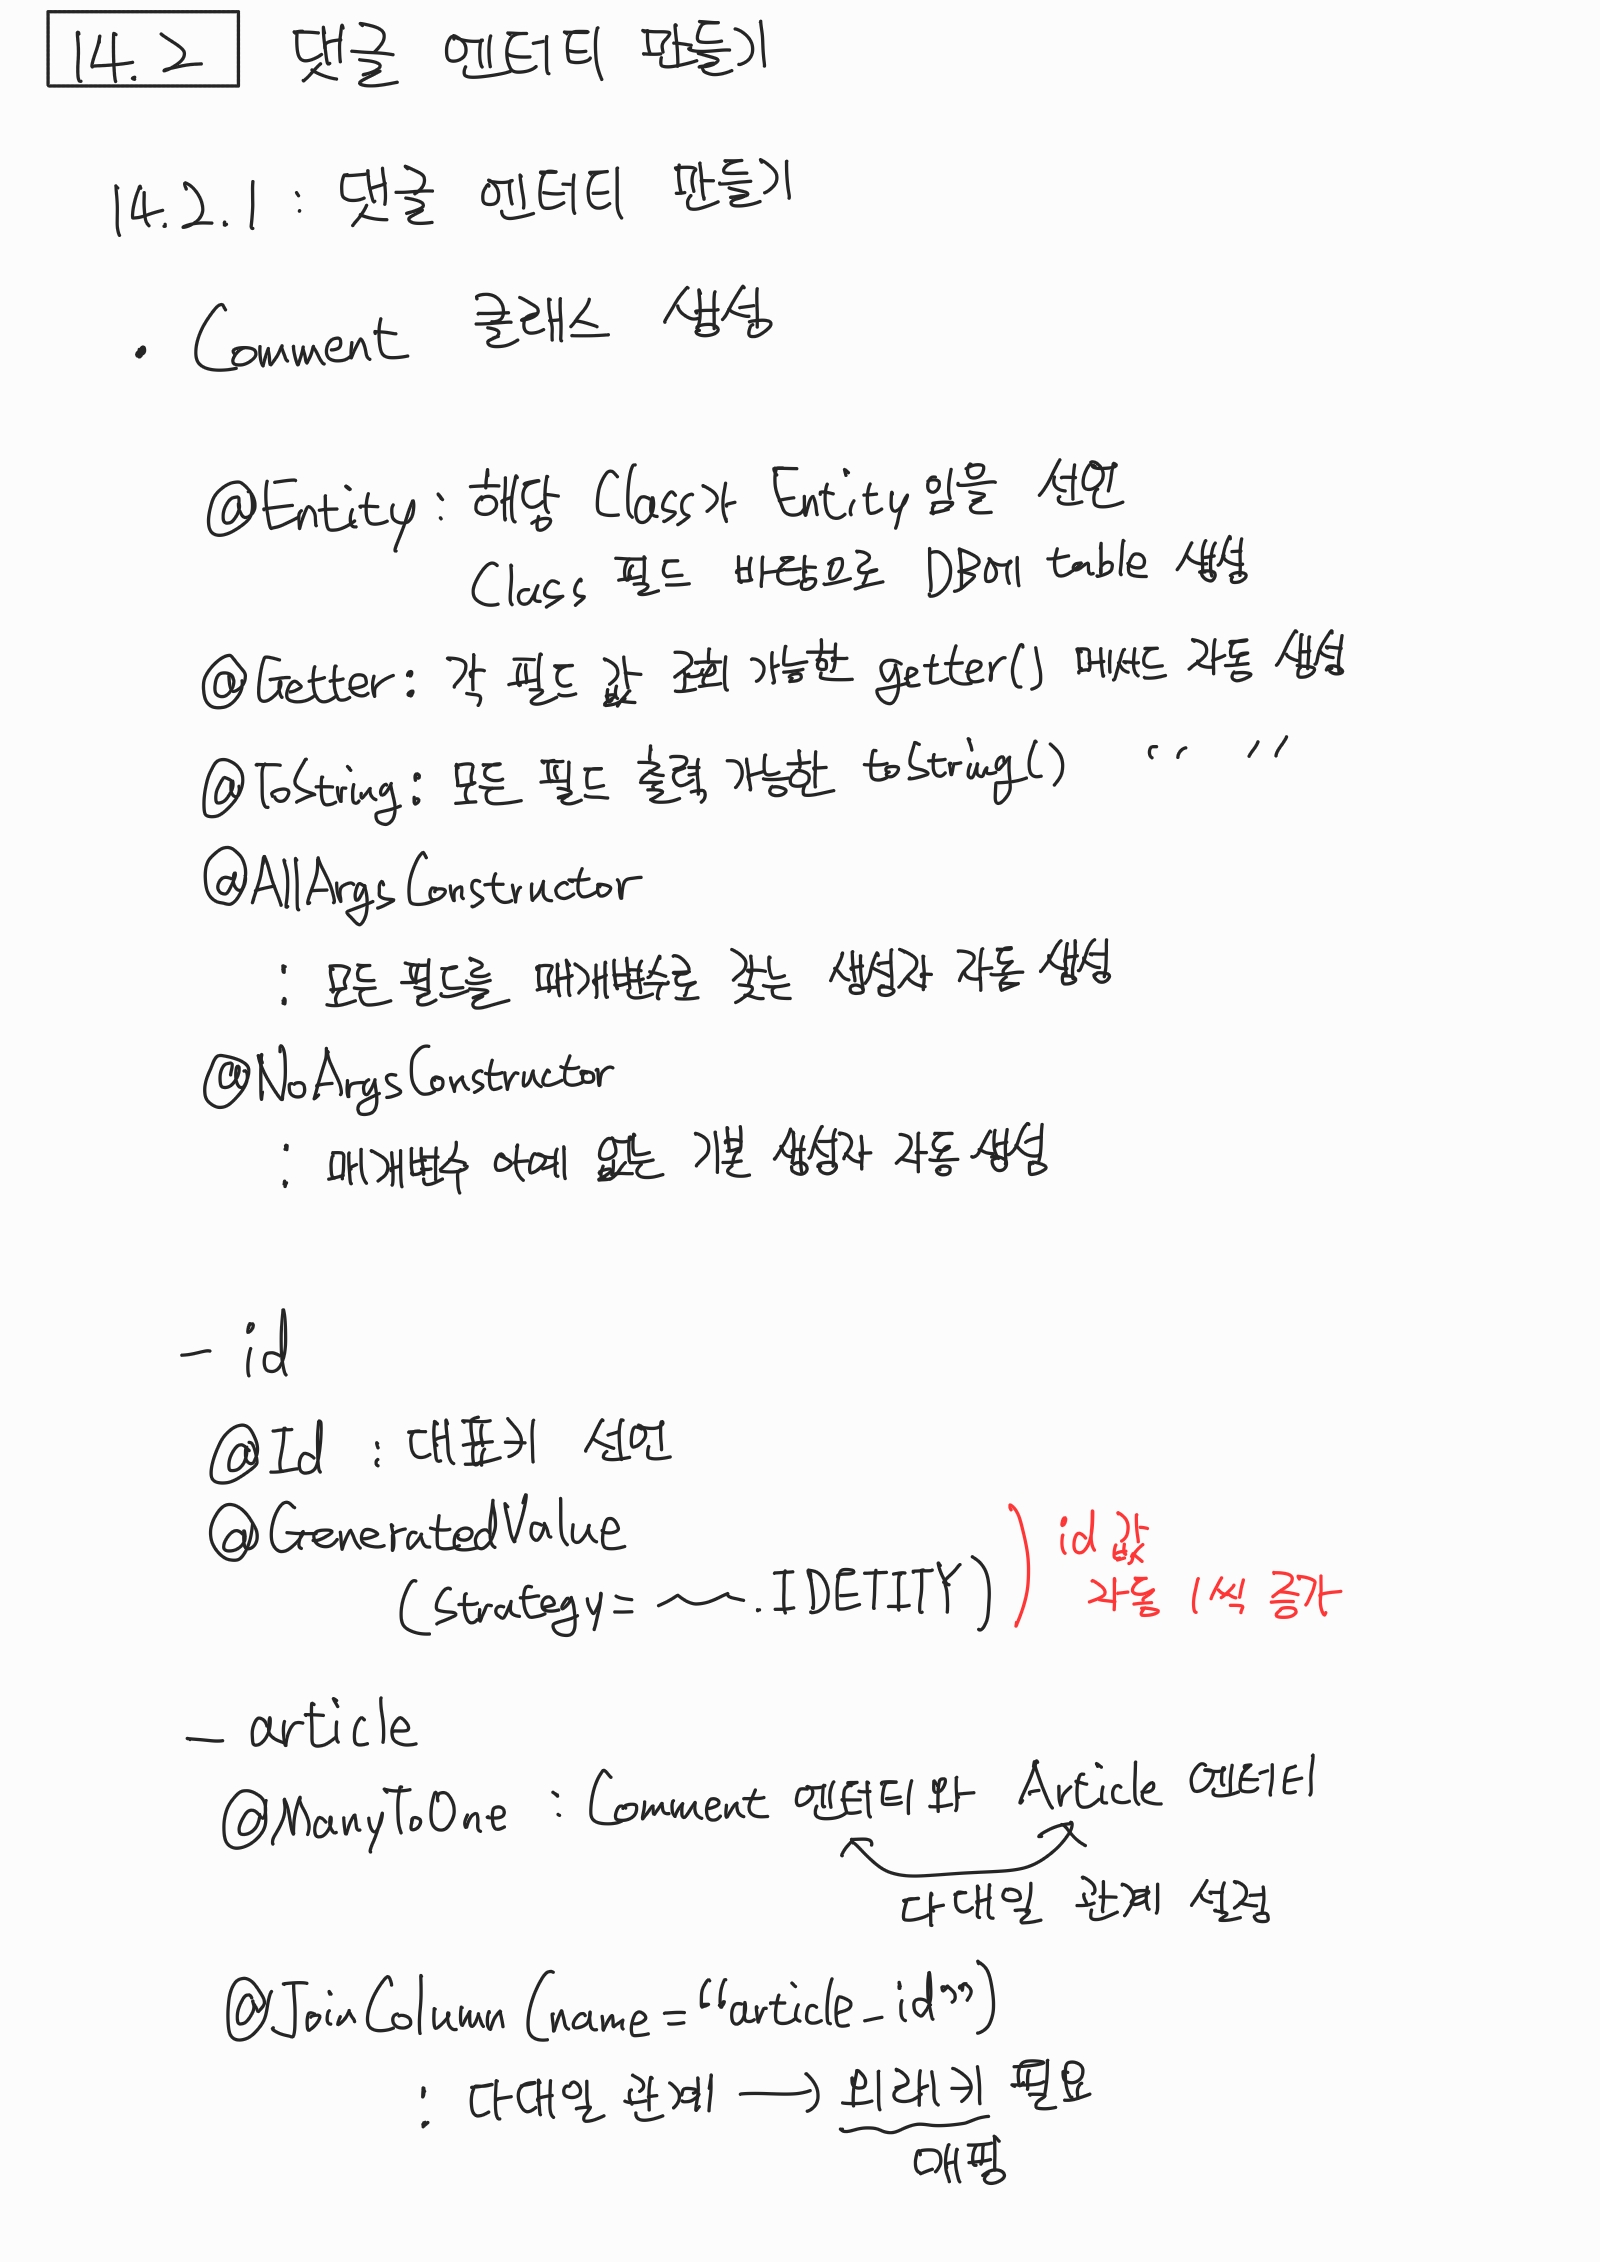 14.2 댓글 엔터티 만들기
14.2.1 : 댓글 엔터티 만들기
• Comment 클래스 생성
@Entity : 해당 Class가 Entity임을 선언
Class 필드 바탕으로 DB에 table 생성
@Getter : 각 필드 값 조회 가능한 getter() 메서드 자동 생성
@ToString : 모든 필드 출력 가능한 toString() “ ”
@AllArgsConstructor
: 모든 필드를 매개변수로 갖는 생성자 자동 생성
@NoArgsConstructor
: 매개변수 아예 없는 기본 생성자 자동 생성
- id
@Id : 대표키 선언
@GeneratedValue
(strategy= ~.IDETITY) id 값
자동 1씩 증가
- article
@ManyToOne : Comment 엔터티와 Article 엔터티
다대일 관계 설정
@JoinColumn (name = “article_id”)
: 다대일 관계 → 외래키 필요
매핑